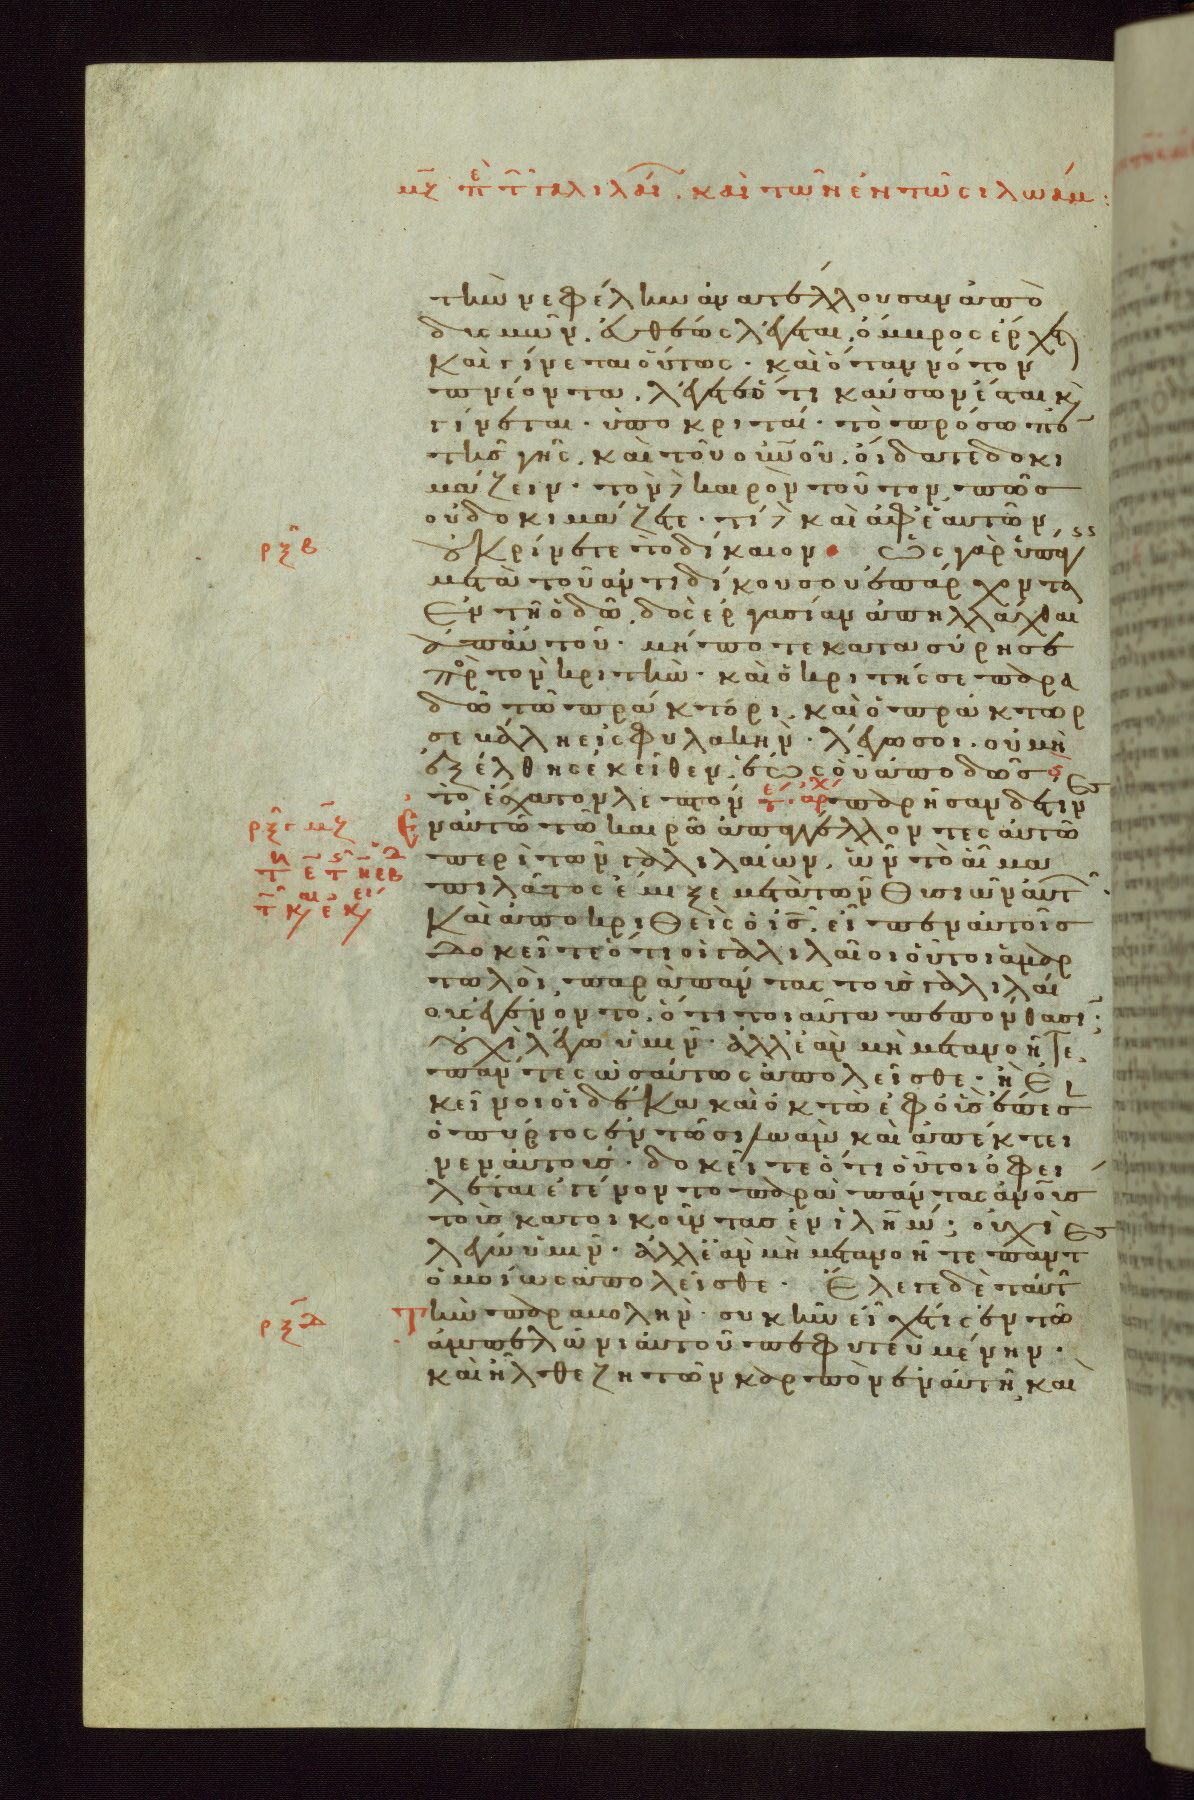 μζ περὶ τῶν γαλιλαί. καὶ τῶν ἐν τῷ σιλωάμ:
τὴν νεφέλην ἀνατέλλουσαν ἀπὸ
δυσμῶν. εὐθέως λέγεται, ὄμβρος ἔρχεται
καὶ γίνεται οὕτως. καὶ ὅταν νότον
πνέοντα, λέγετε ὅτι καύσων ἔσται καὶ
γίνεται. ὑποκριταί. τὸ πρόσωπον
τῆς γῆς, καὶ τοῦ οὐνοῦ. οἴδατε δοκι
μάζειν. τὸν δὲ καιρὸν τοῦτον, πῶς
οὐ δοκιμάζετε. τί δὲ καὶ ἀφ' ἑαυτῶν
ρξβ οὐ κρίνετε τὸ δίκαιον. Ὡς γὰρ ὑπάγεις
μετὰ τοῦ ἀντιδίκου σου ἐπ' ἄρχοντα
ἐν τῇ ὁδῷ, δὸς ἐργασίαν ἀπηλλάχθαι
ἀπ' αὐτοῦ. μήποτε κατασύρῃ σε
πρὸς τὸν κριτήν. καὶ ὁ κριτής σε παρα
δῷ τῷ πράκτορι, καὶ ὁ πράκτωρ
σε βάλῃ εἰς φυλακήν. λέγω σοι. οὐ μὴ
ἐξέλθῃς ἐκεῖθεν, ἕως οὗ ἀποδῷς
τὸ ἔσχατον λεπτόν παρῆσαν δέ τιν
ἐς ἐν αὐτῷ τῷ καιρῷ ἀπαγγέλλοντες αὐτῷ
περὶ τῶν γαλιλαίων, ὧν τὸ αἷμα
πιλᾶτος ἔμιξε μετὰ τῶν θυσιῶν αὐτῶν.
καὶ ἀποκριθεὶς ὁ ις, εἶπεν αὐτοῖς
δοκεῖτε ὅτι οἱ γαλιλαῖοι οὗτοι ἁμαρ
τωλοὶ, παρὰ πάντας τοὺς γαλιλαί
ους ἐγένοντο, ὅτι τοιαῦτα πεπόνθασι;
οὐχὶ λέγω ὑμῖν. ἀλλ' ἐὰν μὴ μετανοῆτε,
πάντες ὡσαύτως ἀπολεῖσθε. ἢ ἐ
κεῖνοι οἱ δέκα καὶ ὀκτὼ ἐφ' οὓς ἔπεσ
ὁ πύργος ἐν τῷ σιλωὰμ καὶ ἀπέκτει
νεν αὐτούς. δοκεῖτε ὅτι οὗτοι ὀφει
λέται ἐγένοντο παρὰ πάντας ἀνους
τοὺς κατοικοῦντας ἐν ιλημ; οὐχὶ
λέγω ὑμῖν. ἀλλ' ἐὰν μὴ μετανοῆτε πάντ
ὁμοίως ἀπολεῖσθε. Ἔλεγε δὲ ταύτ
ρξδ τὴν παραβολήν. συκῆν εἶχέ τις ἐν τῷ
ἀμπελῶνι αὐτοῦ πεφυτευμένην.
καὶ ἦλθε ζητῶν καρπὸν ἐν αὐτῇ, καὶ